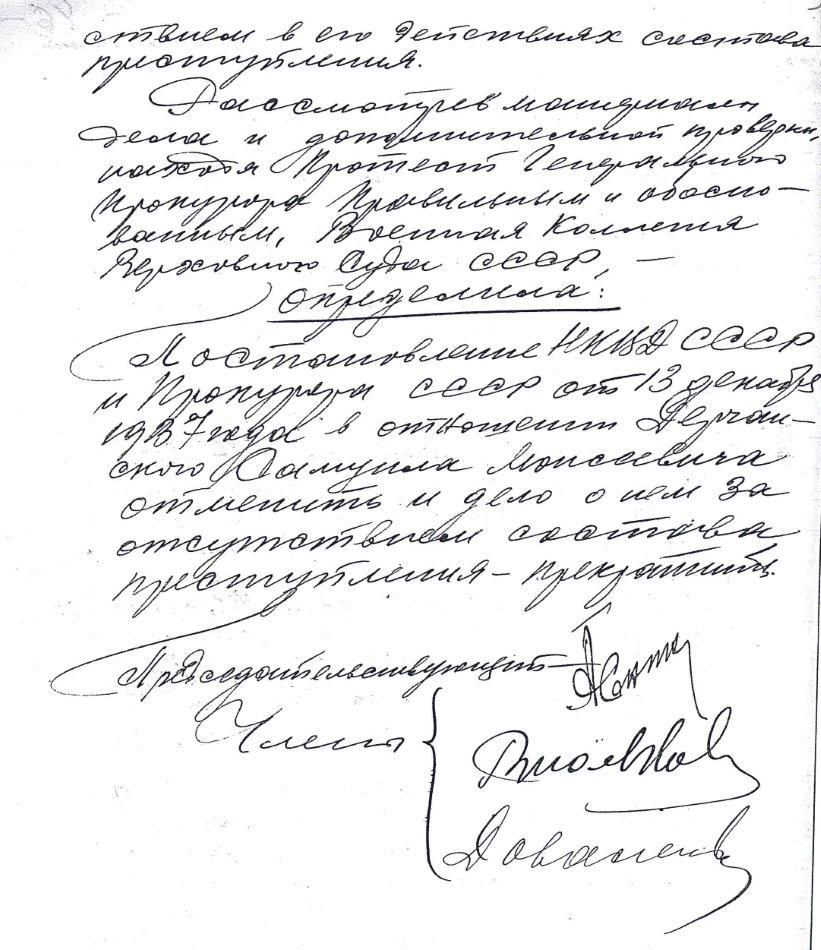 ствием в его действиях состава
преступления.
Рассмотрев материалы
дела и дополнительной проверки,
находя Протест Генерального
Прокурора Правильным и обосно-
ванным, Военная Коллегия
Верховного Суда СССР, —
определила:
Постановление НКВД СССР
и Прокурора СССР от 13 декабря
1937 года в отношении Держан-
ского Самуила Моисеевича
отменить и дело о нем за
отсутствием состава
преступления – прекратить.
Председательствующий –
Члены